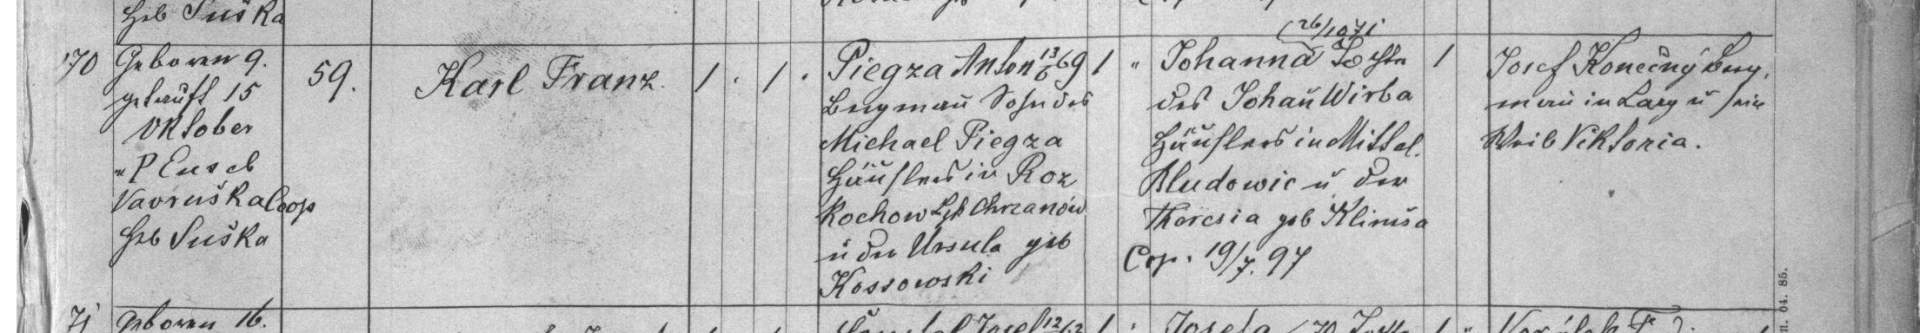 Heb Suška
170
Geboren 9.
getauft 15
Oktober
P Euseb
Vavruška Coop
Heb Suška
59.
Karl Franz
1 1
Piegza Anton 13/6 69
Bergmañ Sohn des
Michael Piegza
Häuslers in Roz
kochow Chrzanów
u der Ursula geb
Kossowski
1
(26/1071
Johanna Tochter
des Johañ Wirba
Häuslers in Mittel.
Bludowic u der
Theresia geb Klimša
Cop. 19/7. 97
1
Josef Konečný Berg,
mañ in Lazy u sein
Weib Viktoria.
71
Geboren 16.
Josef 12/
Josefa